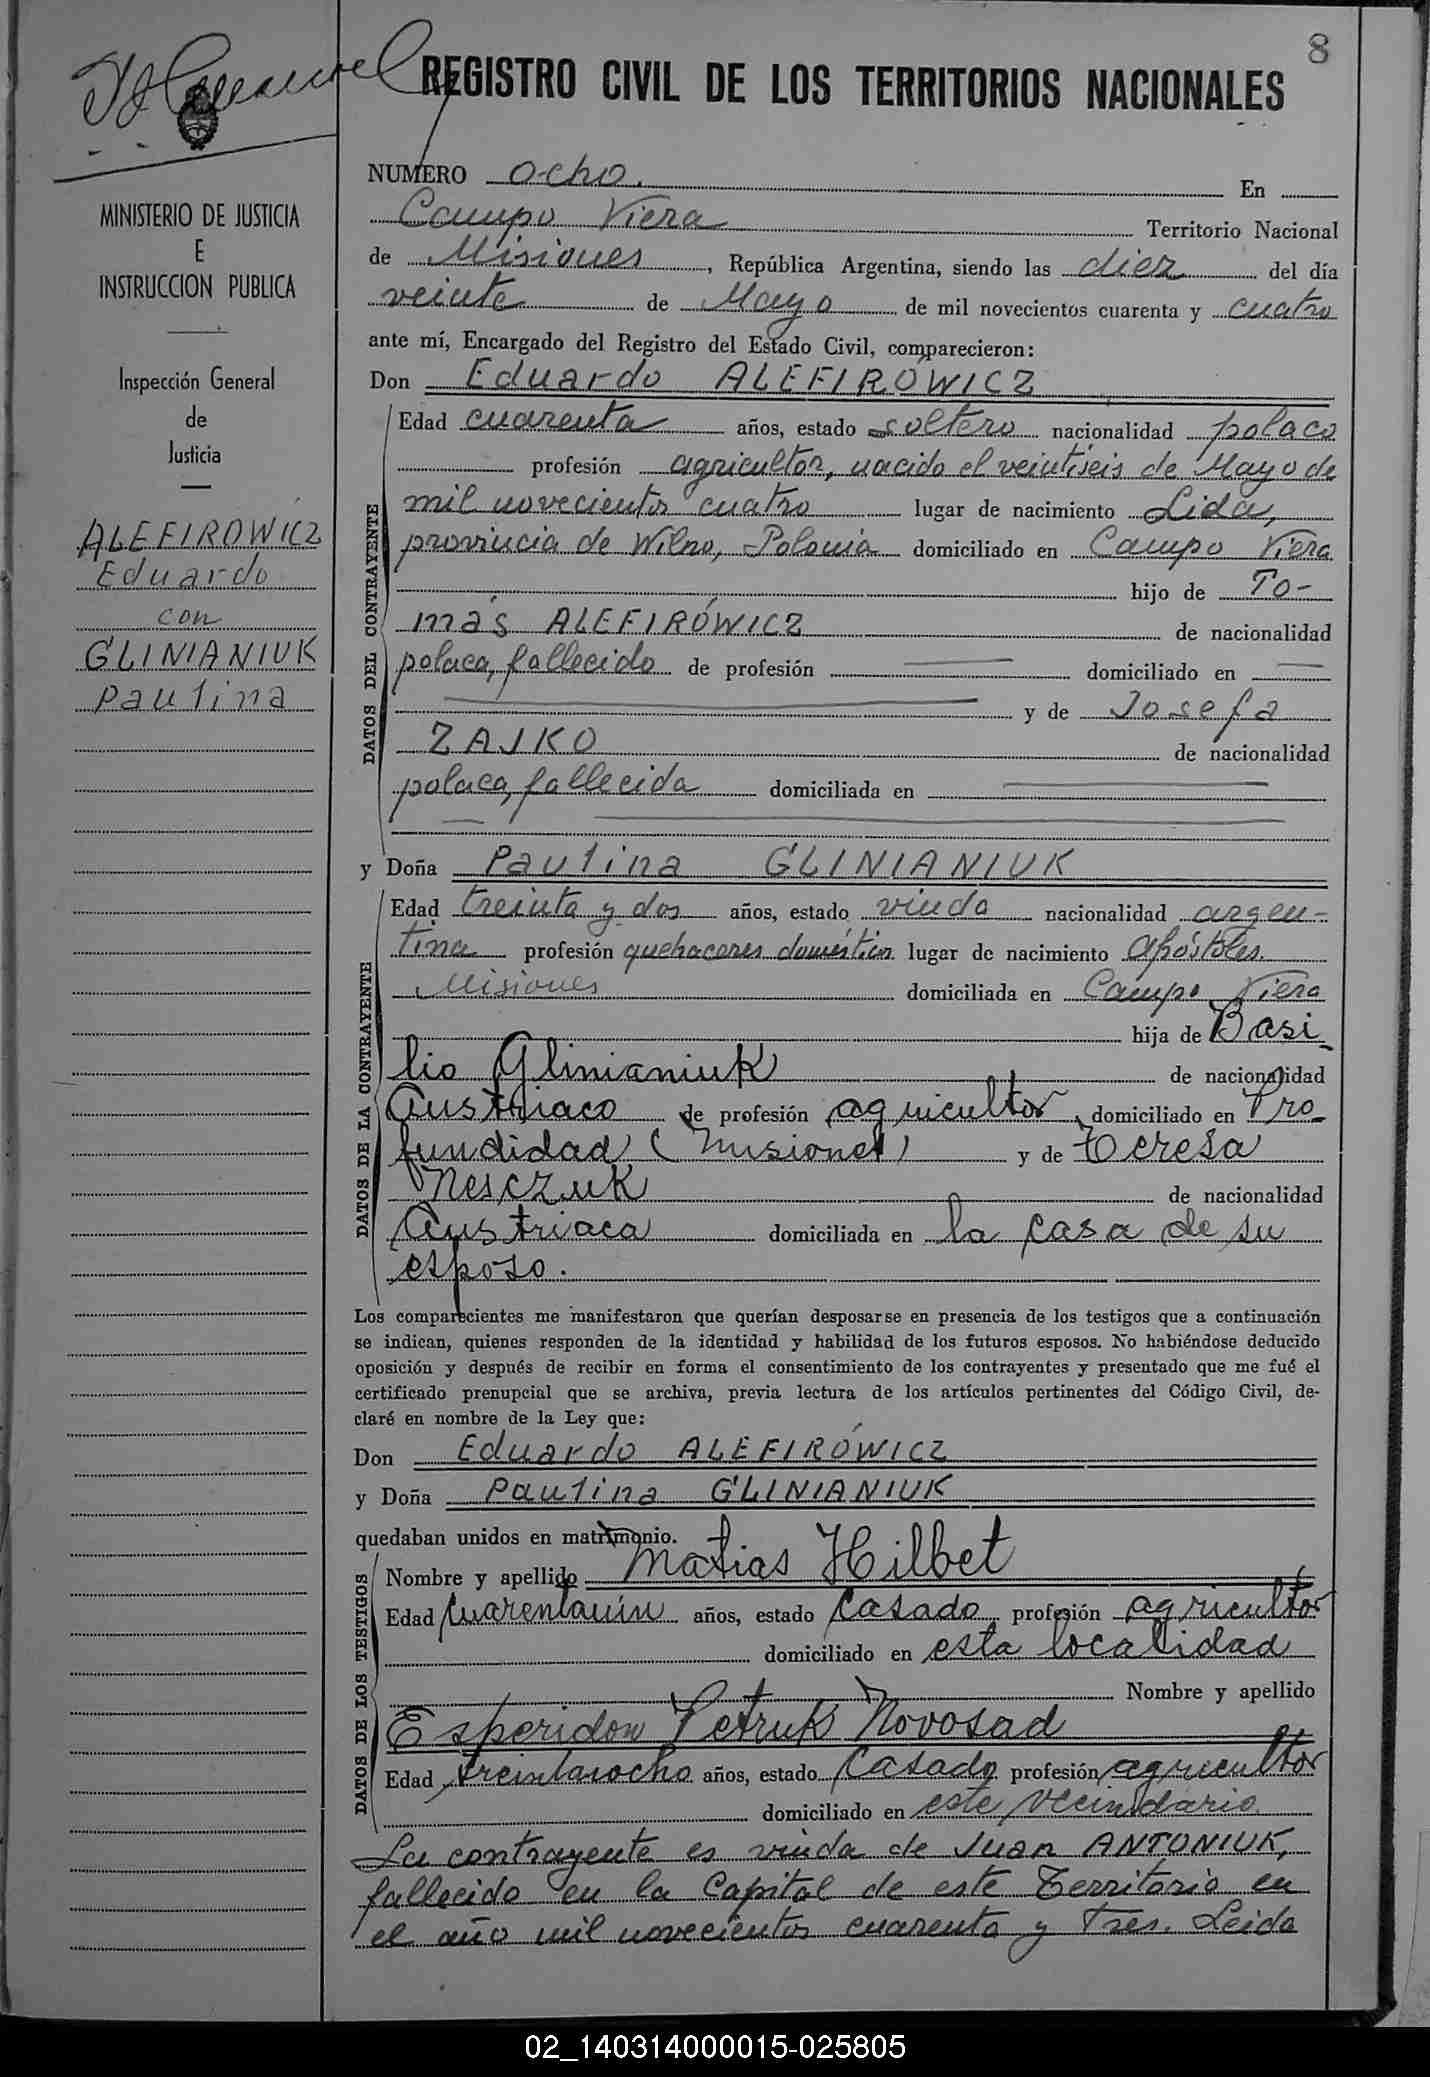 8
REGISTRO CIVIL DE LOS TERRITORIOS NACIONALES
MINISTERIO DE JUSTICIA
E
INSTRUCCION PUBLICA
Inspección General
de
Justicia
ALEFIROWICZ
Eduardo
con
GLINIANIUK
Paulina
NUMERO ocho. En
Campo Viera Territorio Nacional
de Misiones, República Argentina, siendo las diez del día
veinte de Mayo de mil novecientos cuarenta y cuatro
ante mí, Encargado del Registro del Estado Civil, comparecieron:
Don Eduardo ALEFIRÓWICZ
DATOS DEL CONTRAYENTE
Edad cuarenta años, estado soltero nacionalidad polaco
profesión agricultor, nacido el veintiseis de Mayo de
mil novecientos cuatro lugar de nacimiento Lida,
provincia de Wilno, Polonia domiciliado en Campo Viera
hijo de To-
más ALEFIRÓWICZ de nacionalidad
polaca, fallecido de profesión domiciliado en
y de Josefa
ZAJKO de nacionalidad
polaca, fallecida domiciliada en
y Doña Paulina GLINIANIUK
DATOS DE LA CONTRAYENTE
Edad treinta y dos años, estado viuda nacionalidad argen-
tina profesión quehaceres domésticos lugar de nacimiento Apóstoles.
Misiones domiciliada en Campo Viera
hija de Basi
lio Glinianiuk de nacionalidad
Austriaco de profesión agricultor, domiciliado en Pro
fundidad (Misiones) y de Teresa
Nesczuk de nacionalidad
Austriaca domiciliada en la casa de su
esposo.
Los comparecientes me manifestaron que querían desposarse en presencia de los testigos que a continuación
se indican, quienes responden de la identidad y habilidad de los futuros esposos. No habiéndose deducido
oposición y después de recibir en forma el consentimiento de los contrayentes y presentado que me fué el
certificado prenupcial que se archiva, previa lectura de los artículos pertinentes del Código Civil, de-
claré en nombre de la Ley que:
Don Eduardo ALEFIRÓWICZ
y Doña Paulina GLINIANIUK
quedaban unidos en matrimonio.
DATOS DE LOS TESTIGOS
Nombre y apellido Matias Hilbet
Edad Cuarentaiún años, estado Casado profesión agricultor
domiciliado en esta localidad
Nombre y apellido
Esperidon Petruk Novosad
Edad treintaiocho años, estado Casado profesión agricultor
domiciliado en este vecindario
La contrayente es viuda de Juan ANTONIUK,
fallecido en la Capital de este Territorio en
el año mil novecientos cuarenta y tres. Leida
02_140314000015-025805